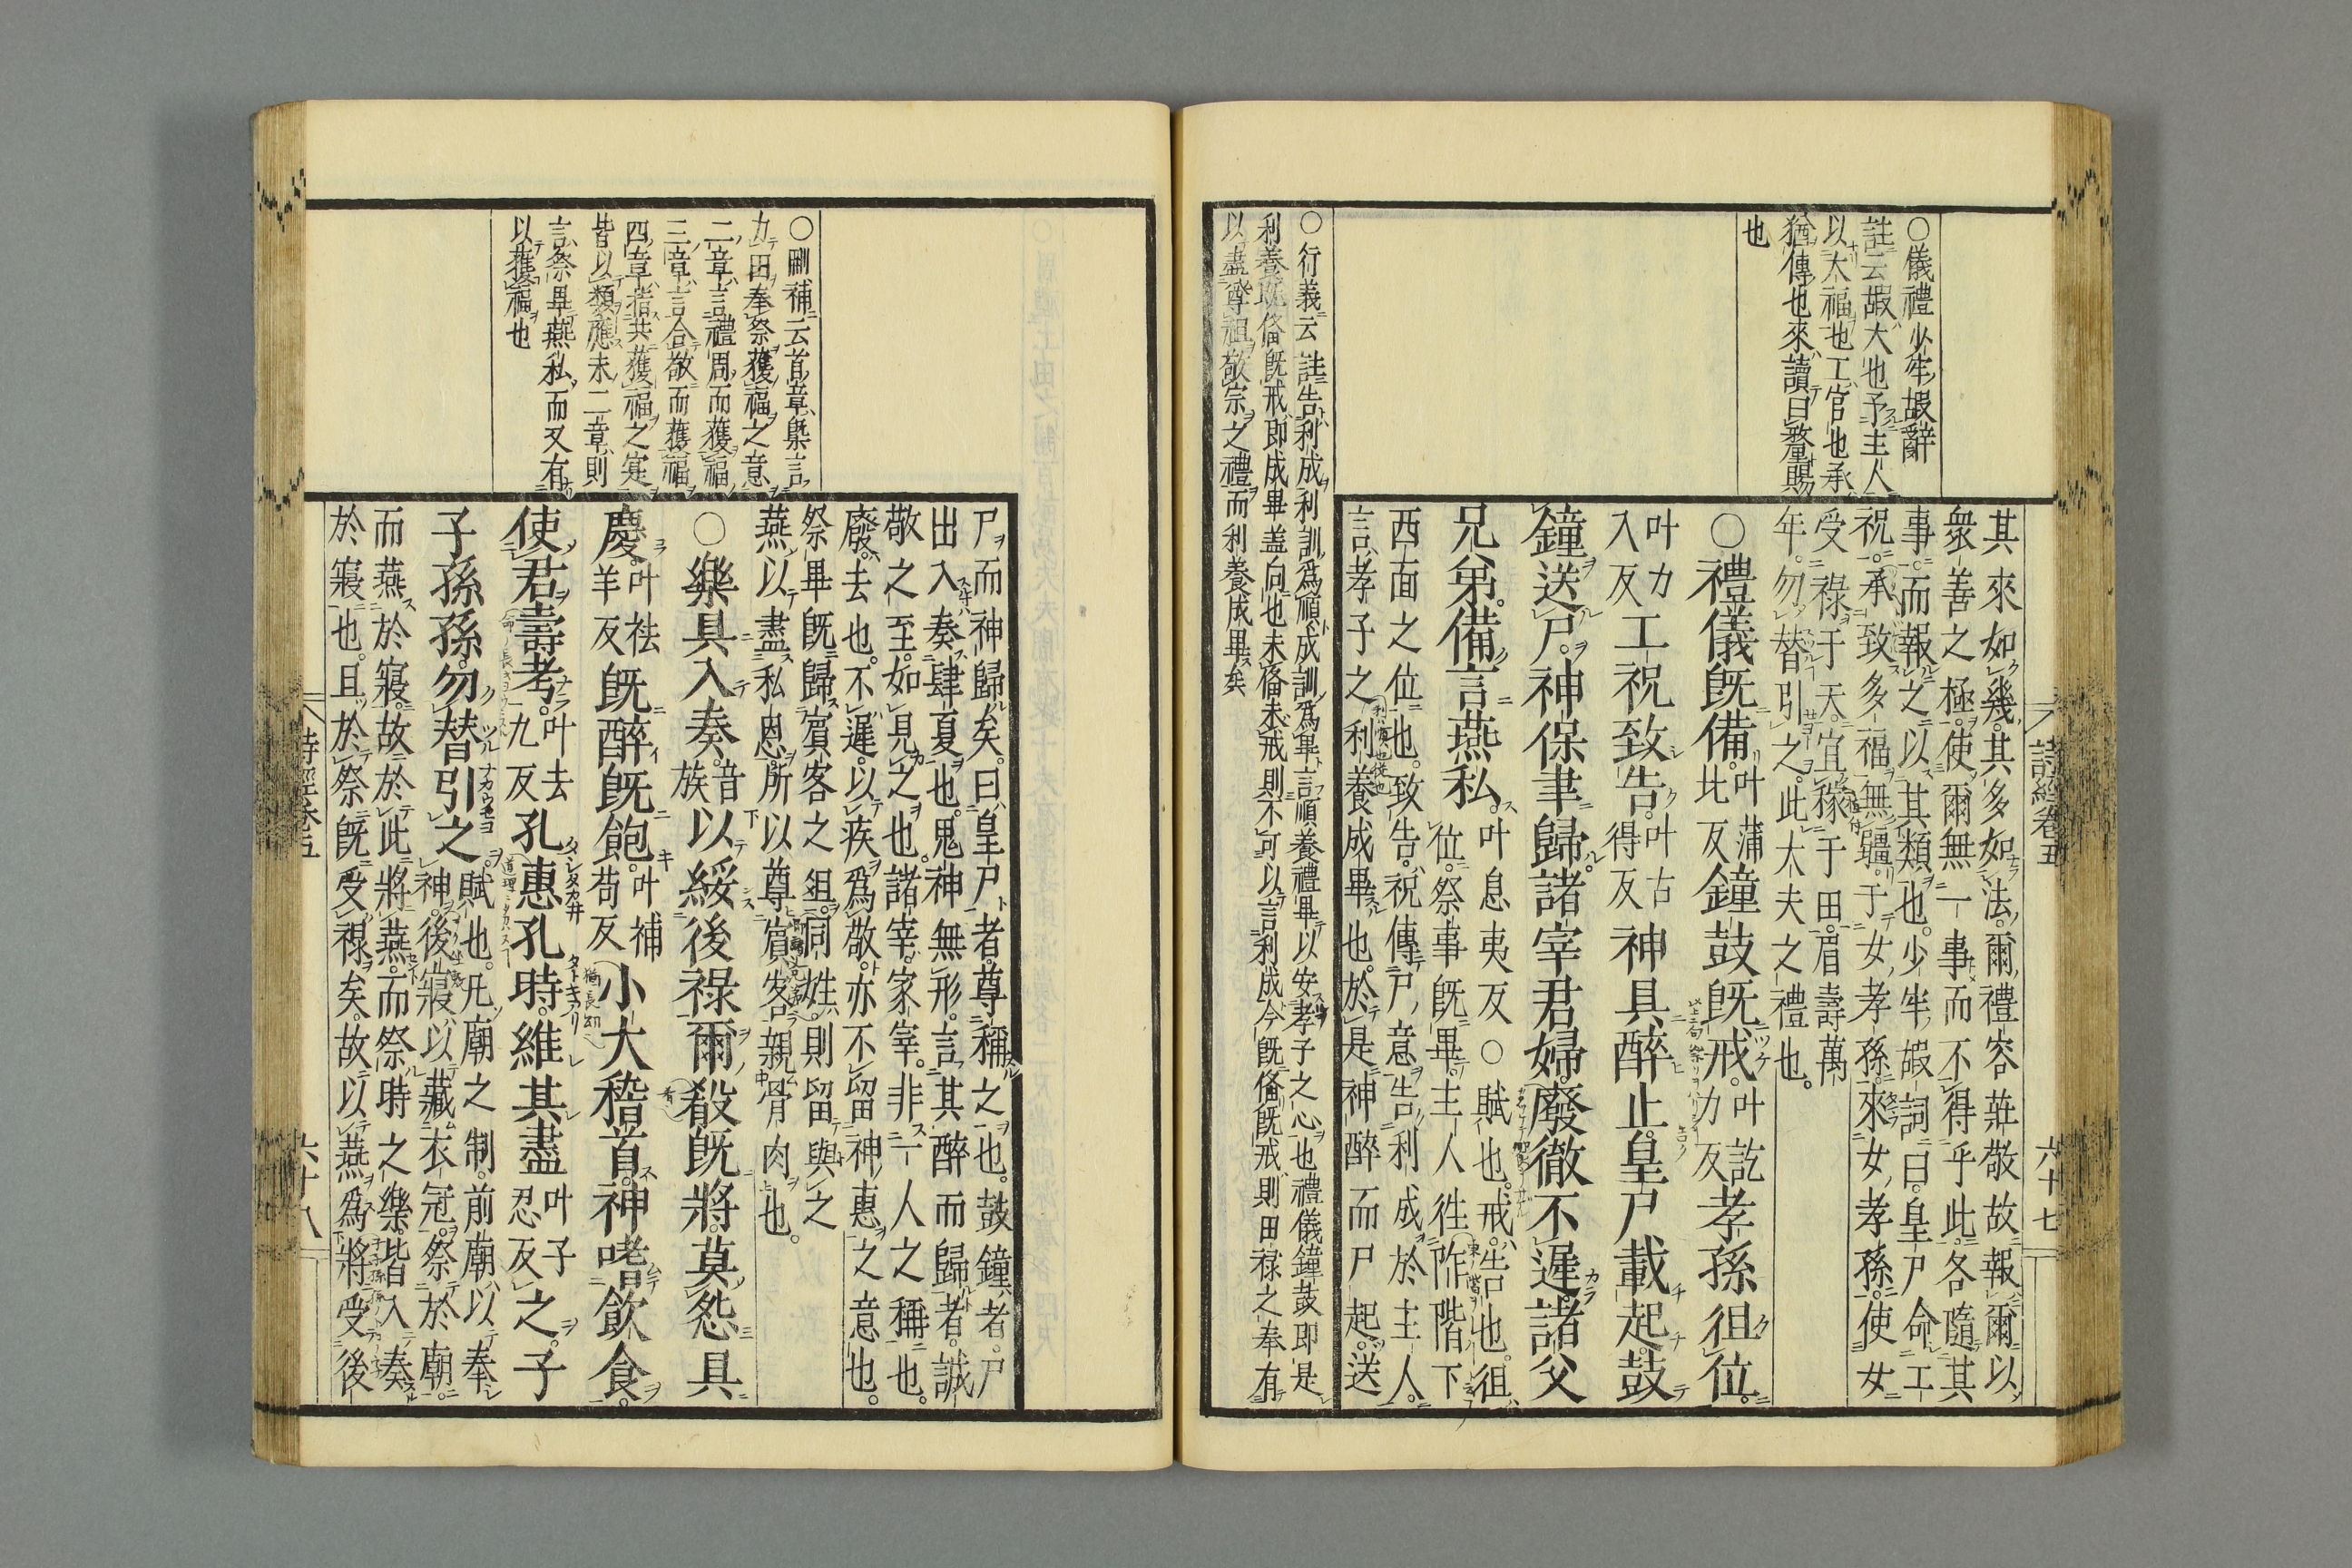 詩經卷五
六十七
○儀禮少牢嘏辭
註云嘏大也予主人
以大福也工官也承
猶傳也來讀曰釐賜
也
其來如幾其多如法爾禮容莊敬故報爾以
衆善之極使爾無一事而不得乎此各隨其
事而報之以其類也少牢嘏詞曰皇尸命工
祝承致多福無疆于女孝孫來女孝孫使女
受祿于天宜稼于田眉壽萬
年勿替引之此大夫之禮也
○禮儀既備叶蒲北反鐘鼓既戒叶訖力反孝孫徂位
叶力入反工祝致告叶古得反神具醉止皇尸載起鼓
鐘送尸神保聿歸諸宰君婦廢徹不遲諸父
兄弟備言燕私叶息夷反○賦也戒告也徂
位祭事既畢主人往阼階下
西面之位也致告祝傳尸意告利成於主人
言孝子之利養成畢也於是神醉而尸起送
○行義云註告利成利訓為順成訓為畢言順養禮畢以安孝子之心也禮儀鐘鼓即是
利養既備既戒即成畢蓋向也未備未戒則不可以言利成今既備既戒則田祿之奉有
以盡尊祖敬宗之禮而利養成畢矣
尸而神歸矣曰皇尸者尊稱之也鼓鐘者尸
出入奏肆夏也鬼神無形言其醉而歸者誠
敬之至如見之也諸宰家宰非一人之稱也
廢去也不遲以疾為敬亦不留神惠之意也
祭畢既歸賓客之俎同姓則留與之
燕以盡私恩所以尊賓客親骨肉也
○刪補云首章槩言
力田奉祭獲福之意
二章言禮周而獲福
三章言合敬而獲福
四章指共獲福之寔
皆以類應末二章則
言祭畢燕私而又有
以獲福也
○樂具入奏音族以綏後祿爾殽既將莫怨具
慶叶袪羊反既醉既飽叶補苟反小大稽首神嗜飲食
使君壽考叶去九反孔惠孔時維其盡叶子忍反之子
子孫孫勿替引之賦也凡廟之制前廟以奉
神後寢以藏衣冠祭於廟
而燕於寢故於此將燕而祭時之樂皆入奏
於寢也且於祭既受祿矣故以燕為將受後
詩經卷五
六十八